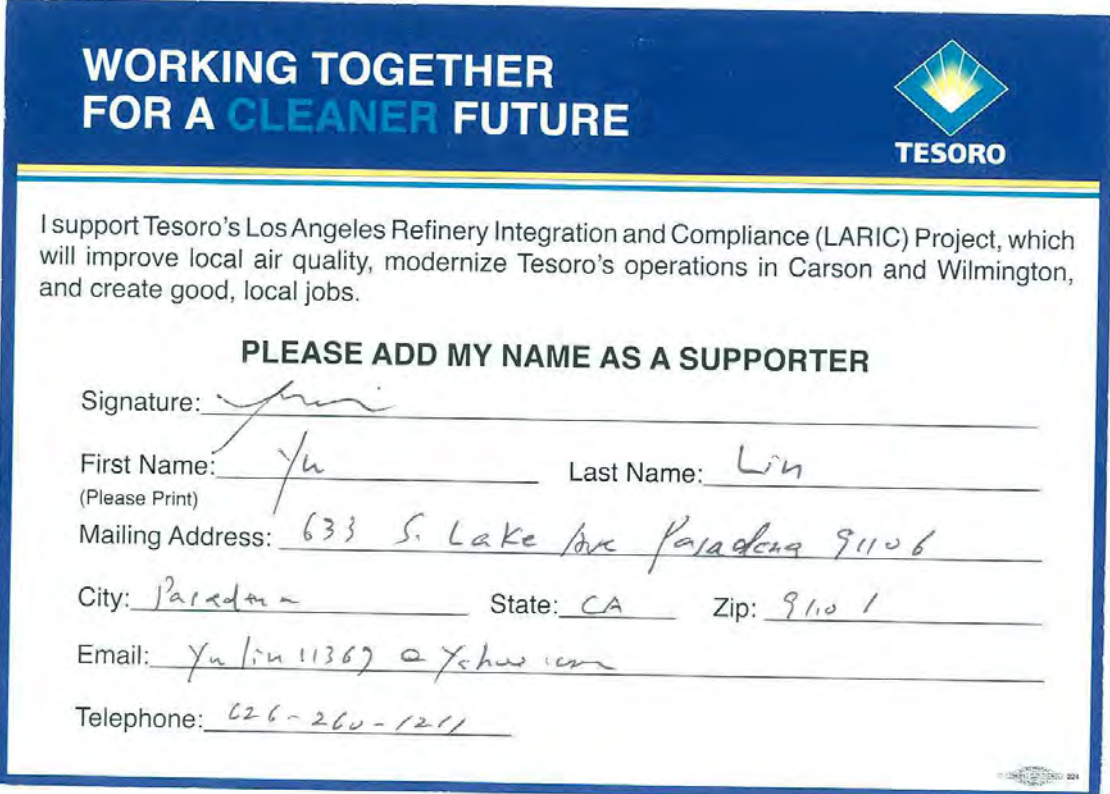 WORKING TOGETHER
FOR A CLEANER FUTURE
TESORO
I support Tesoro's Los Angeles Refinery Integration and Compliance (LARIC) Project, which
will improve local air quality, modernize Tesoro's operations in Carson and Wilmington,
and create good, local jobs.
PLEASE ADD MY NAME AS A SUPPORTER
Signature:
First Name: Yu Last Name: Lin
(Please Print)
Mailing Address: 633 S. Lake Ave Pasadena 91106
City: Pasadena State: CA Zip: 91101
Email: Yulin11369@Yahoo.com
Telephone: 626-260-1211
224